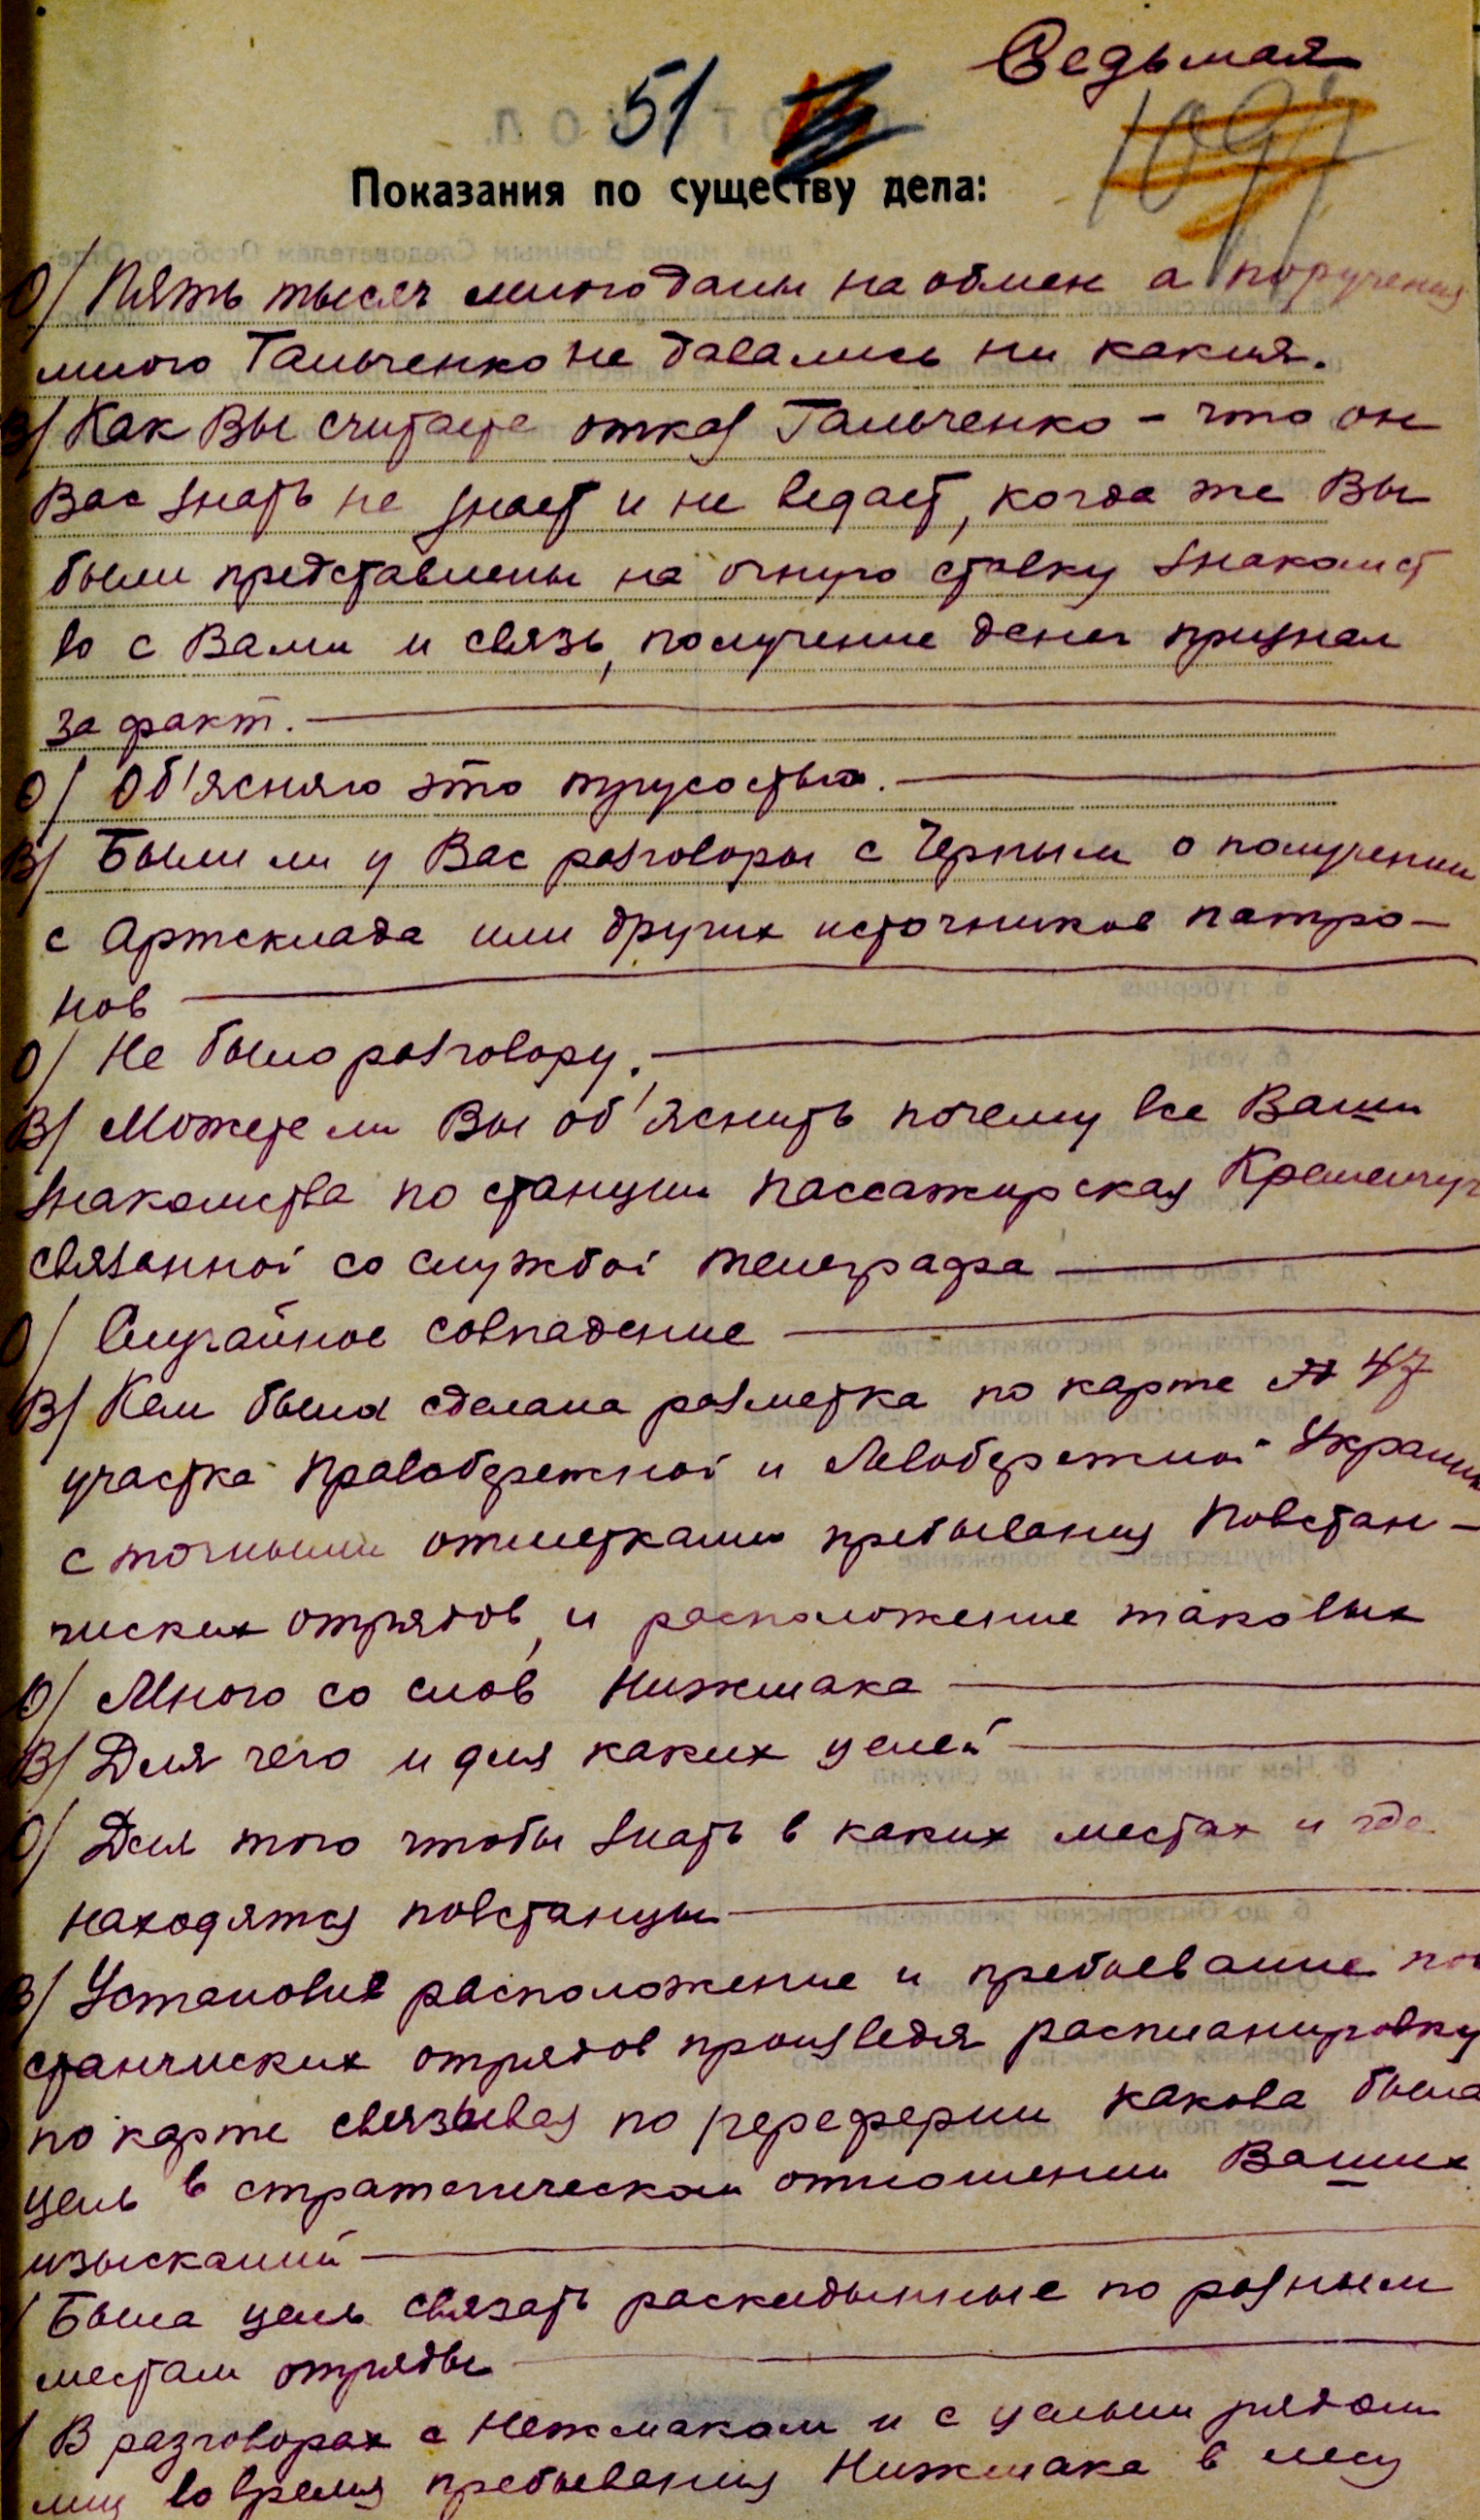 Седьмая
51
1094
Показания по существу дела:
О/ Пять тысяч мною даны на обмен а поручения
мною Гальченко не давались ни какия.
В/ Как Вы считаете отказ Гальченко – что он
Вас знать не знает и не ведает, когда же Вы
были представлены на очную ставку знакомст
во с Вами и связь, получение денег признал
за факт.
О/ Об'ясняю это трусостью.
В/ Были ли у Вас разговоры с Черным о получении
с Артсклада или других источников патро–
нов
О/ Не было разговору.
В/ Можете ли Вы об'яснить почему все Ваши
знакомства по станции пассажирская Кременчуг
связанной со службой телеграфа
О/ Случайное совпадение
В/ Кем была сделана разметка по карте № 47
участка Правобережной и Левобережной Украины
с точными отметками пребывания Повстан–
чиских отрядов, и расположение таковых
О/ Мною со слов Нижмака
В/ Для чего и для каких целей
О/ Для того чтобы знать в каких местах и где
находятся повстанцы
В/ Установив расположение и пребывание пов
станчиских отрядов произведя распланировку
по карте связывая по переферии какова была
цель в стратегическом отношении Ваших
изысканий
/ Была цель связать раскидынные по разным
местам отряды
/ В разговорах с Нежмаком и с целым рядом
лиц во время пребывания Нижмака в лесу